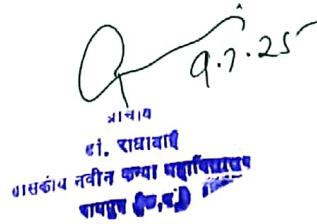 9.7.25
प्राचार्य
डॉ. राधाबाई
शासकीय नवीन कन्या महाविद्यालय
रायपुर (छ.ग.)